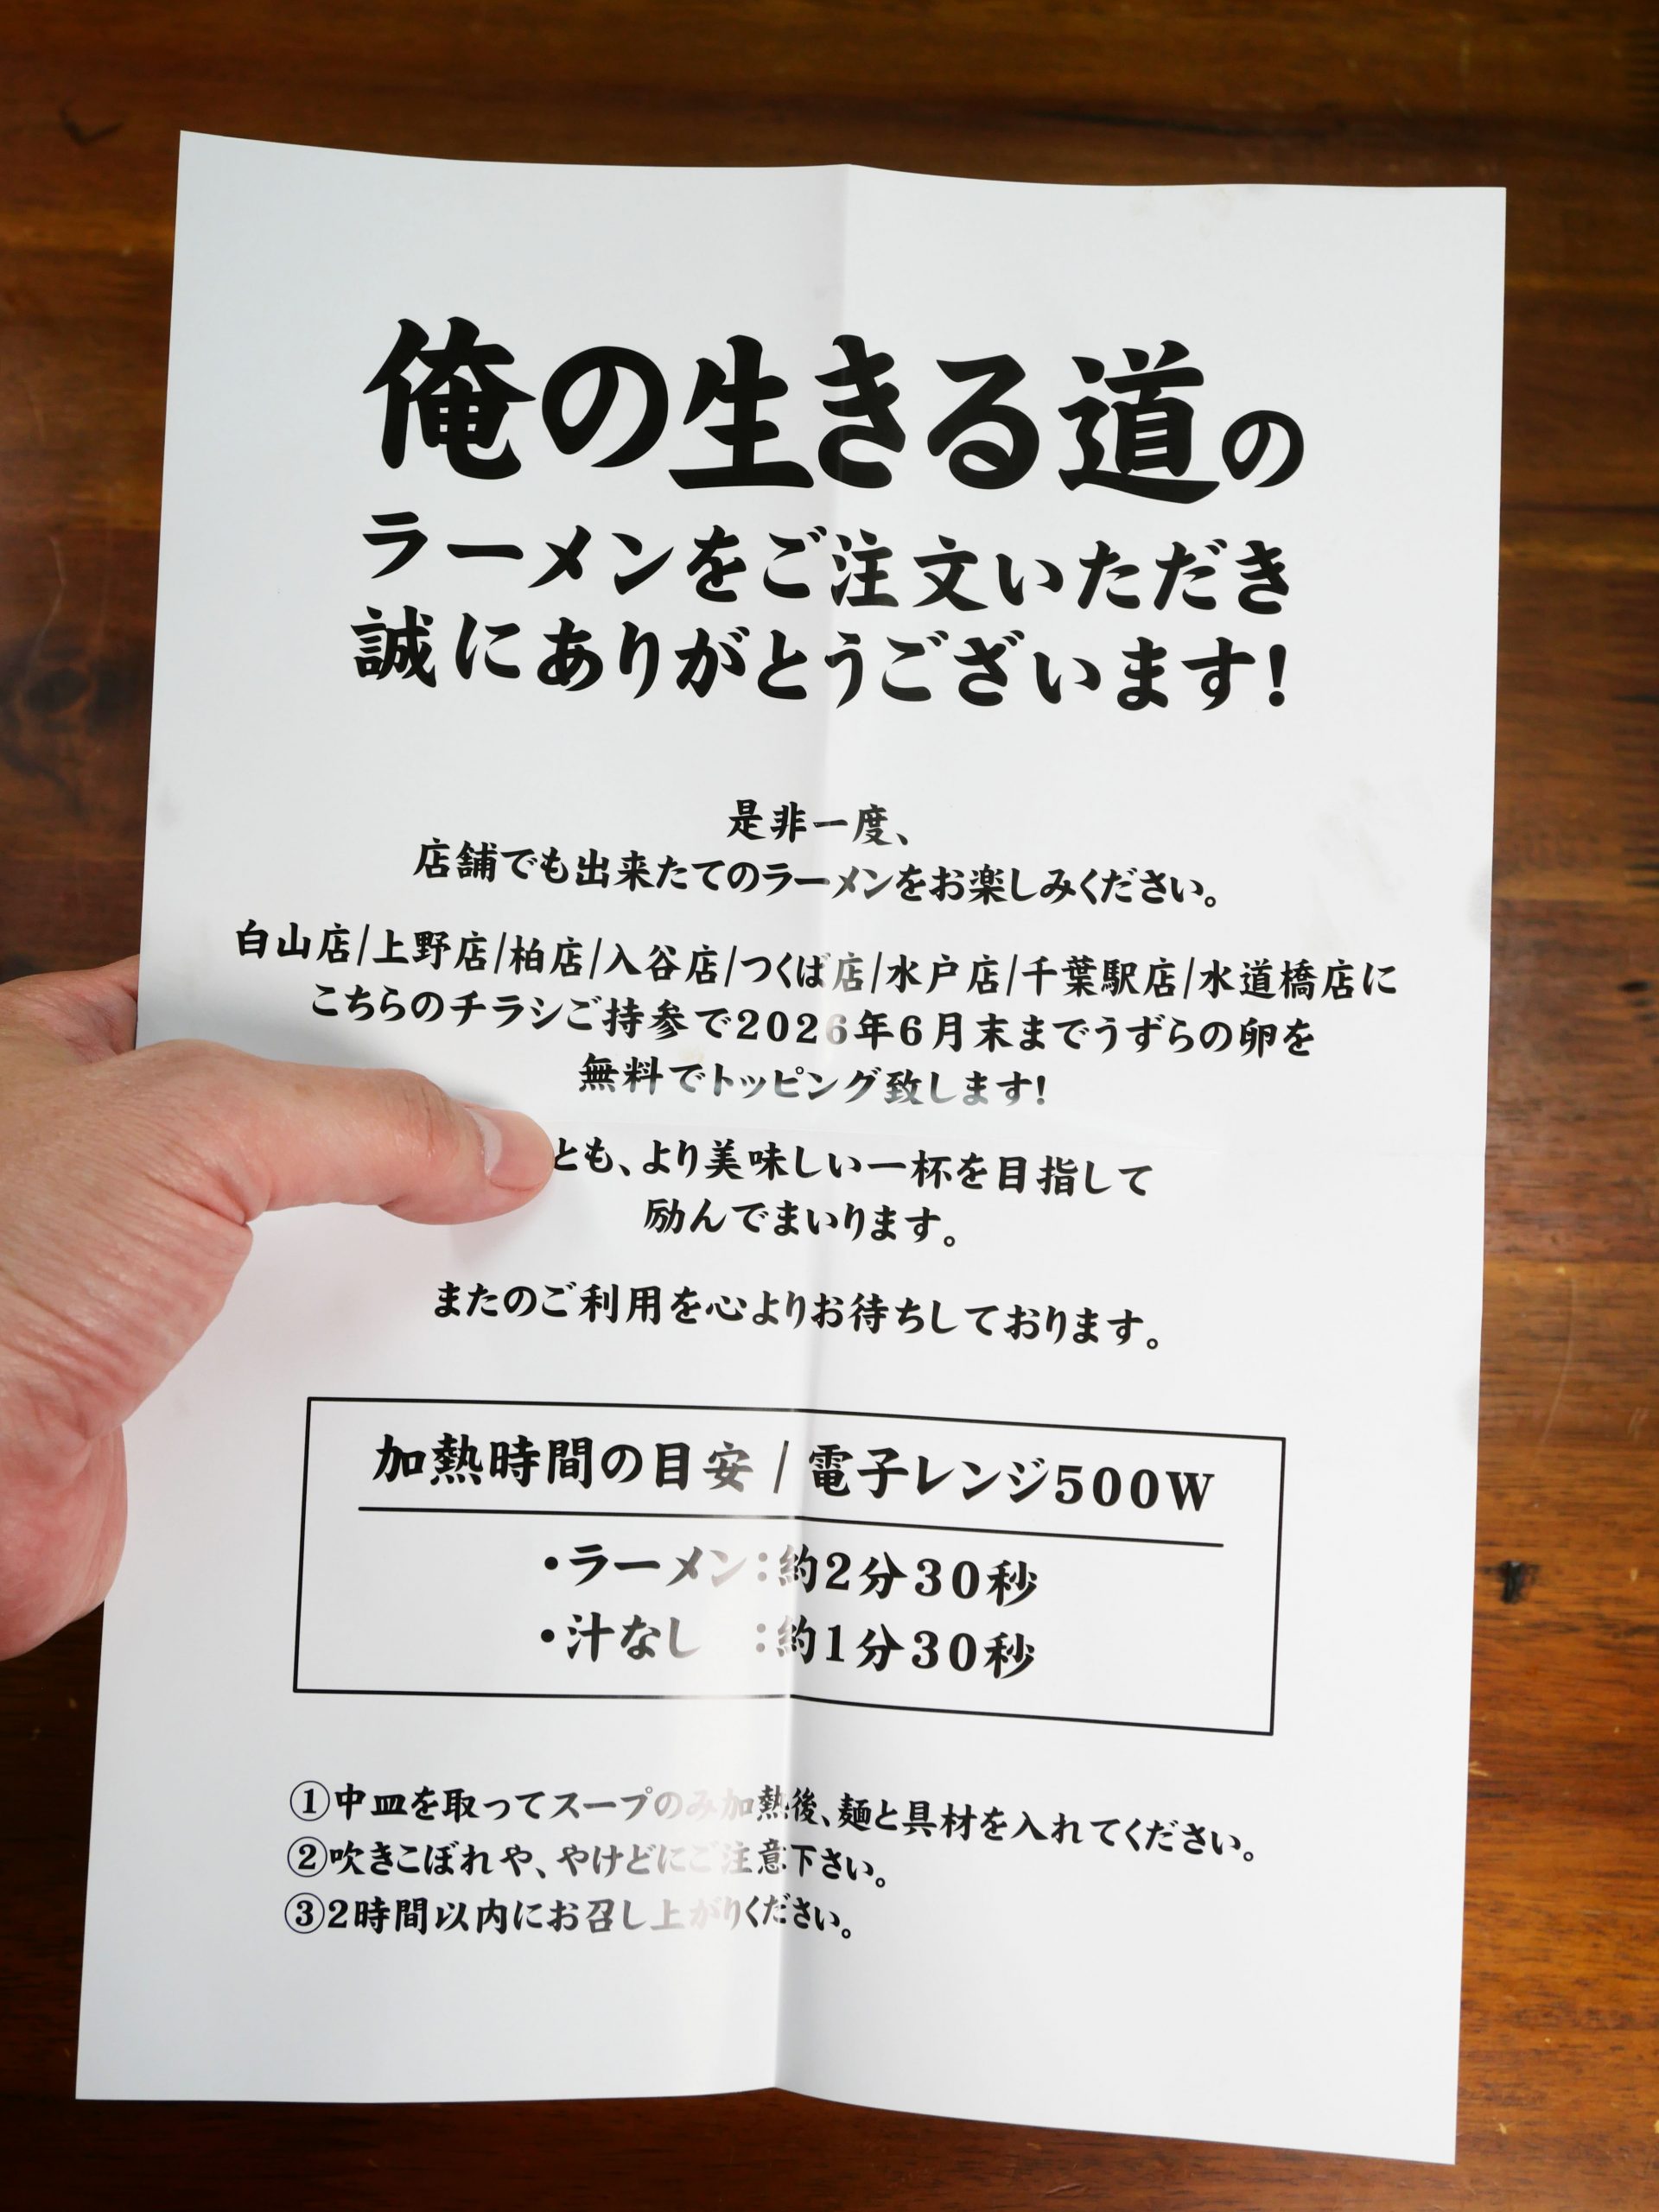 俺の生きる道の
ラーメンをご注文いただき
誠にありがとうございます!
是非一度、
店舗でも出来たてのラーメンをお楽しみください。
白山店/上野店/柏店/入谷店/つくば店/水戸店/千葉駅店/水道橋店に
こちらのチラシご持参で2026年6月末までうずらの卵を
無料でトッピング致します!
とも、より美味しい一杯を目指して
励んでまいります。
またのご利用を心よりお待ちしております。
加熱時間の目安/電子レンジ500W
・ラーメン:約2分30秒
・汁なし :約1分30秒
①中皿を取ってスープのみ加熱後、麺と具材を入れてください。
②吹きこぼれや、やけどにご注意下さい。
③2時間以内にお召し上がりください。